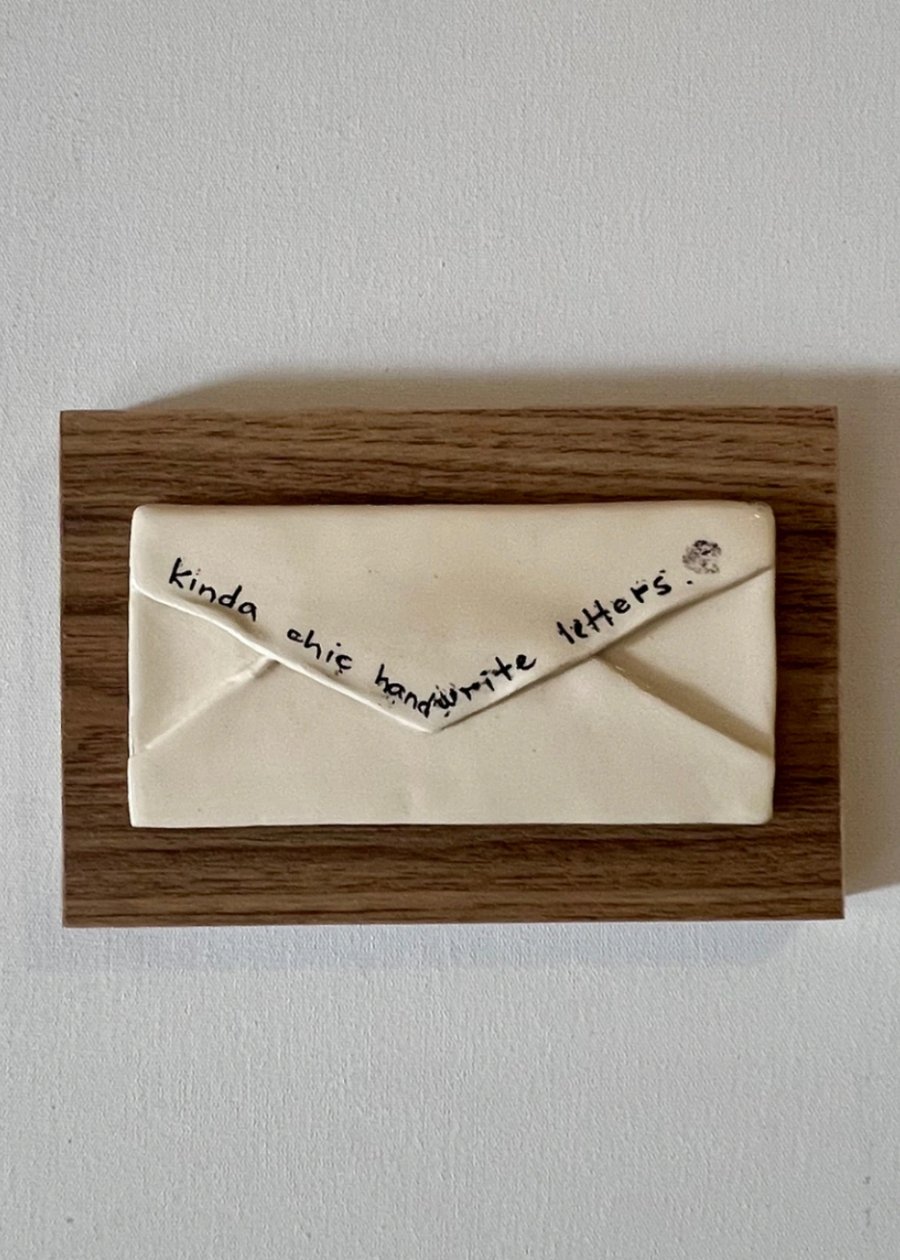 Kinda chic handwrite letters.